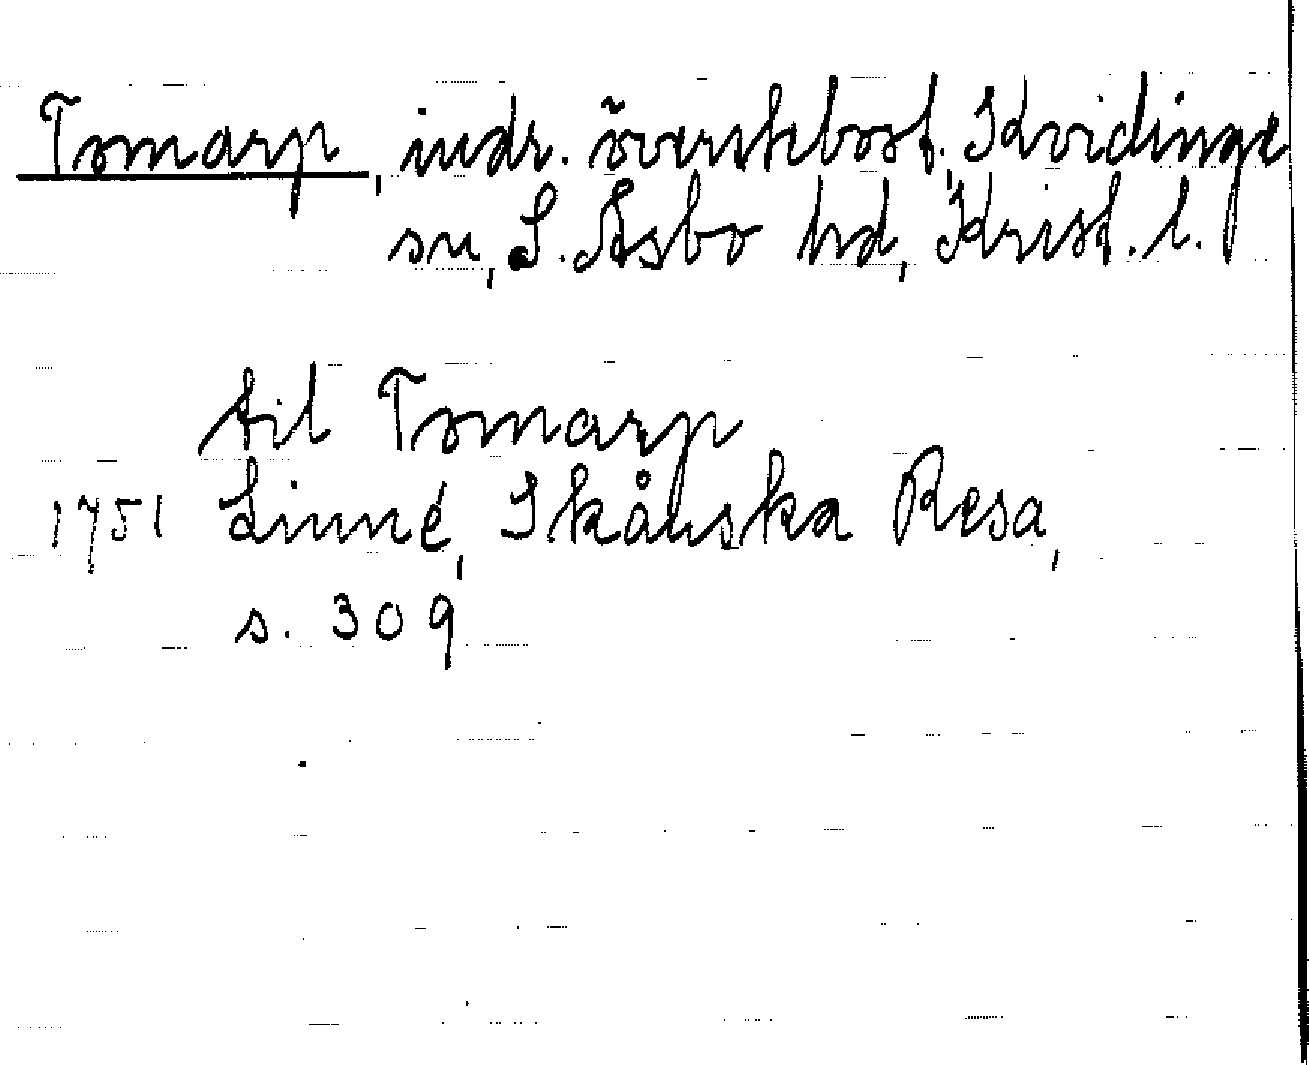 Tomarp, indr. överstebost. Kvidinge
sn, S. Åsbo hd, Krist. l.
til Tomarp
1751 Linné, Skånska Resa,
s. 309